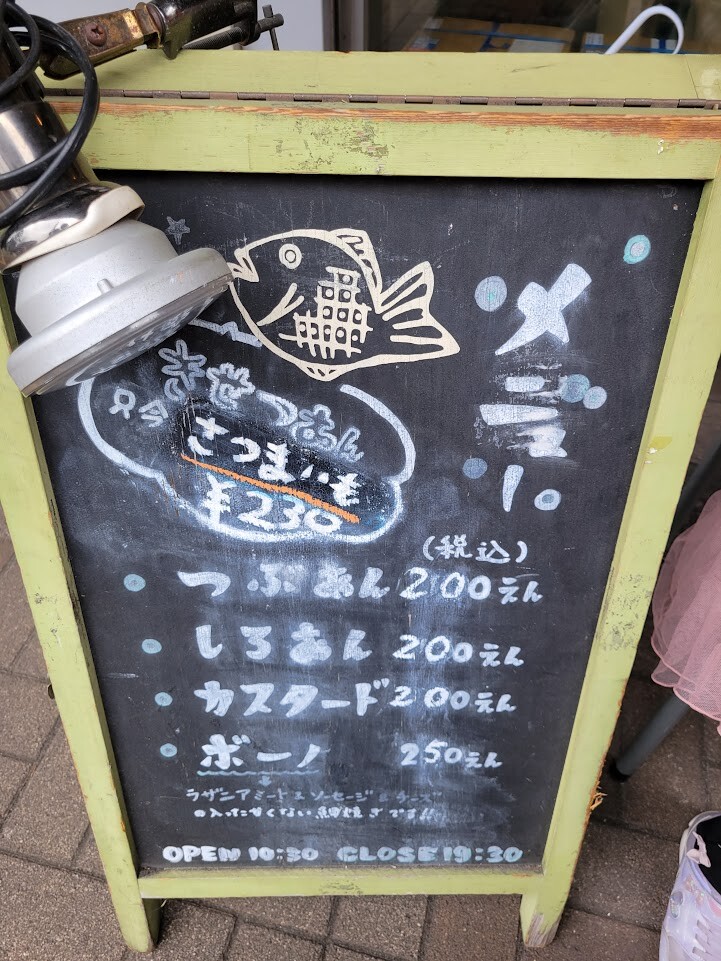 メニュー
さつまいも
¥230
(税込)
つぶあん 200えん
しろあん 200えん
カスタード 200えん
ボーノ 250えん
ラザニアミート&ソーセージ&チーズ
の入った甘くない鯛焼きです!!
OPEN 10:30 CLOSE 19:30